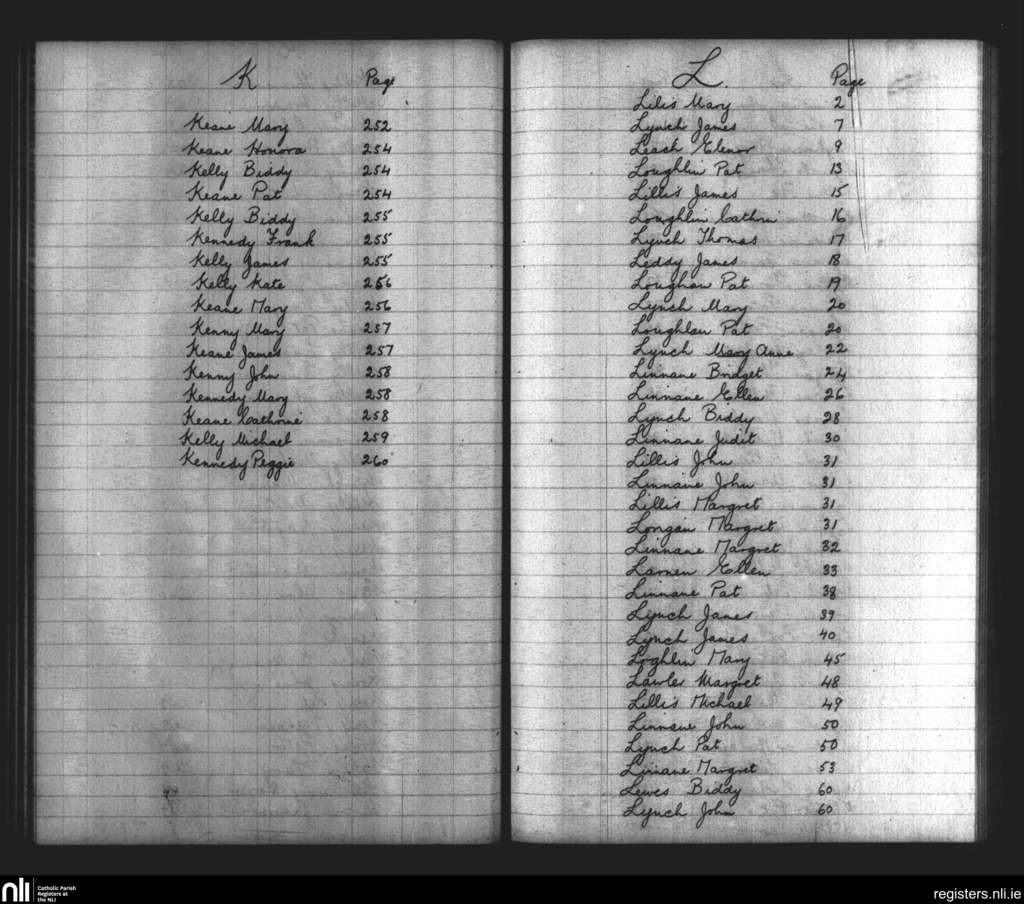 K Page
Keane Mary 252
Keane Honora 254
Kelly Biddy 254
Keane Pat 254
Kelly Biddy 255
Kennedy Frank 255
Kelly James 255
Kelly Kate 256
Keane Mary 256
Kenny Mary 257
Keane James 257
Kenny John 258
Kennedy Mary 258
Keane Cathrine 258
Kelly Michael 259
Kennedy Peggie 260
L Page
Lilis Mary 2
Lynch James 7
Leach Elenor 9
Loughlin Pat 13
Lillis James 15
Loughlin Cathrin 16
Lynch Thomas 17
Leddy James 18
Loughan Pat 19
Lynch Mary 20
Loughlan Pat 20
Lynch Mary Anne 22
Linnane Bridget 24
Linnane Ellen 26
Lynch Biddy 28
Linnane Judit 30
Lillis John 31
Linnane John 31
Lillis Margret 31
Longan Margret 31
Linnane Margret 32
Larnen Ellen 33
Linnane Pat 38
Lynch James 39
Lynch James 40
Loghlin Mary 45
Lawler Margret 48
Lillis Michael 49
Linnane John 50
Lynch Pat 50
Linane Margret 53
Lewes Biddy 60
Lynch John 60
nli Catholic Parish
Registers at
the NLI
registers.nli.ie